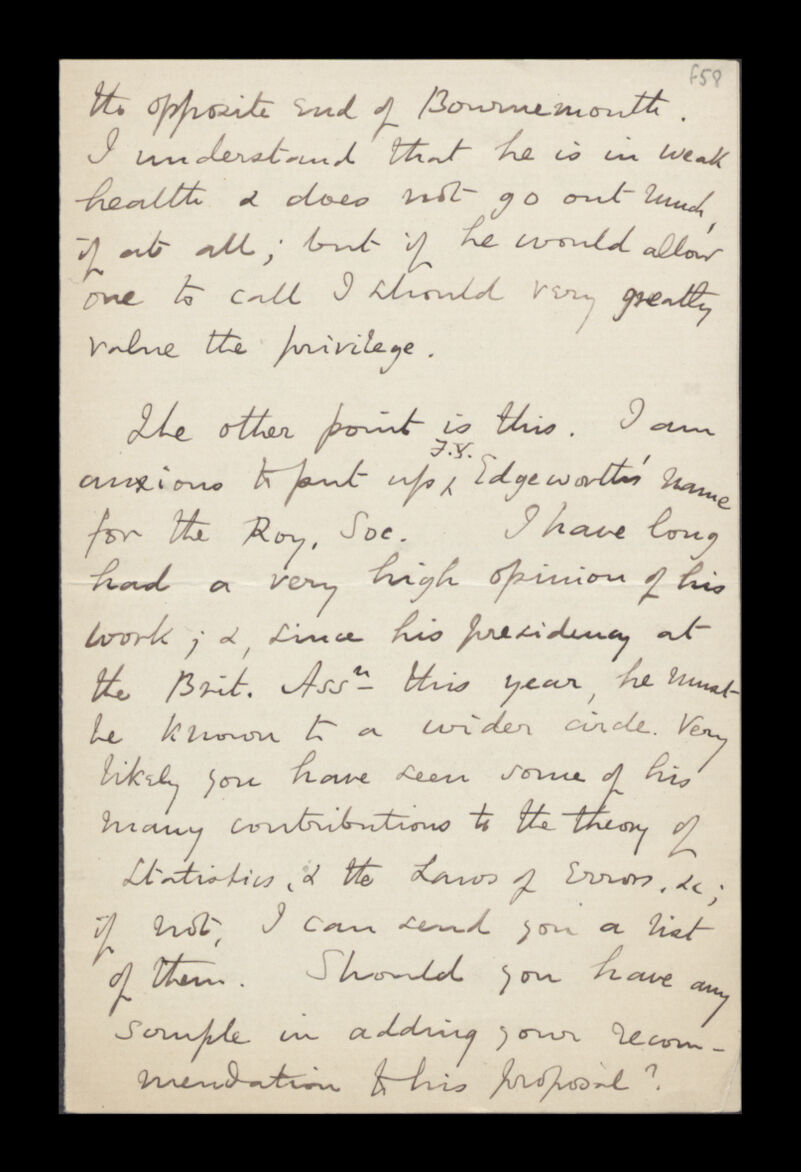 f58
the opposite end of Bournemouth.
I understand that he is in weak
health & does not go out much,
if at all; but if he would allow
one to call I should very greatly
value the privilege.
The other point is this. I am
anxious to put up ‸ F.Y. Edgeworth's name
for the Roy. Soc. I have long
had a very high opinion of his
work; &, since his presidency at
the Brit. Assn this year, he must
be known to a wider circle. Very
likely you have seen some of his
many contributions to the theory of
Statistics, & the Laws of Errors, &c;
if not, I can send you a list
of them. Should you have any
scruple in adding your recom-
mendation to his proposal?